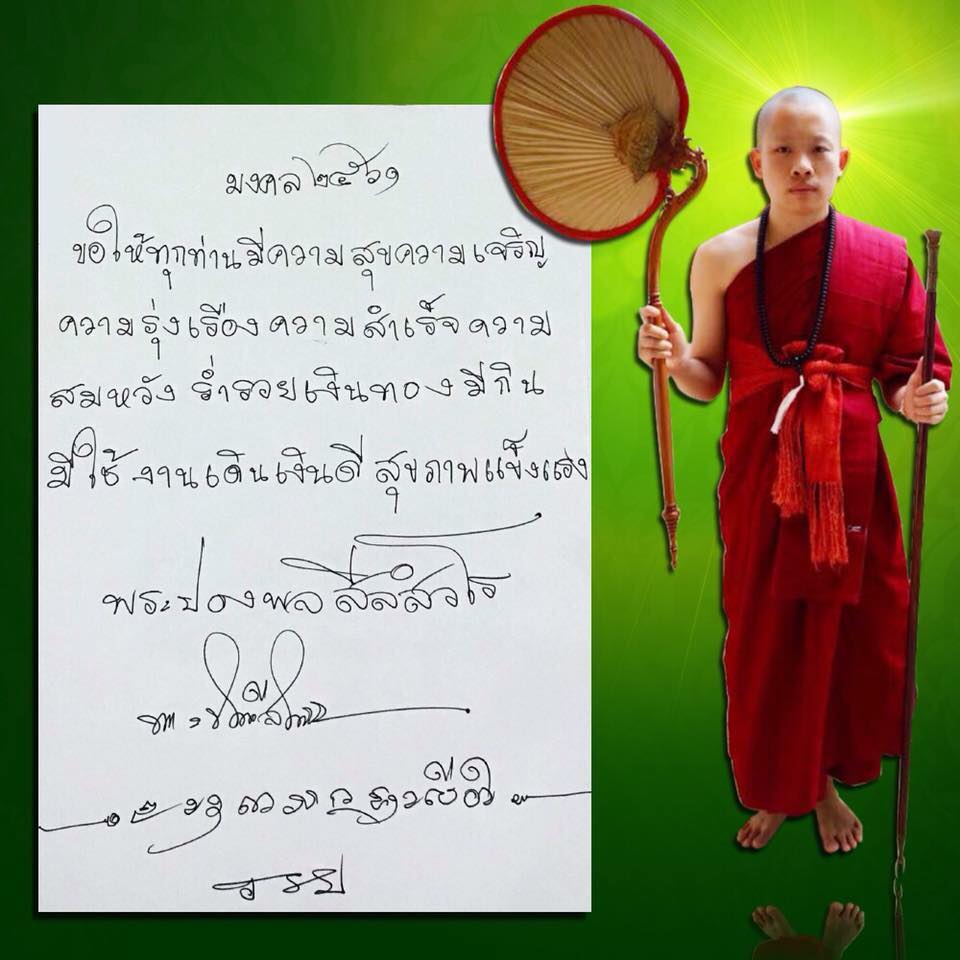 มงคล ๒๕๖๑
ขอให้ทุกท่านมีความสุขความเจริญ
ความรุ่งเรือง ความสำเร็จ ความ
สมหวัง ร่ำรวยเงินทอง มีกิน
มีใช้ งานเดินเงินดี สุขภาพแข็งแรง
พระปองพล สีลสํวโร
รวย